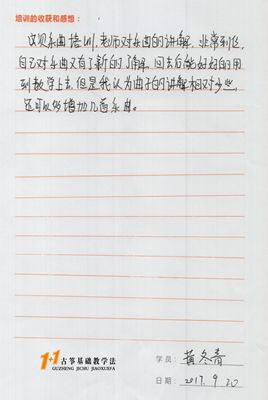 培训的收获和感想：
这次乐曲培训，老师对乐曲的讲解，非常到位，
自己对乐曲又有了新的了解，回去后能好好的用
到教学上去，但是我认为曲子的讲解相对少些，
还可以多增加几首乐曲。
1+1古筝基础教学法
GUZHENG JICHU JIAOXUEFA
学员：黄冬青
日期：2017.9.20